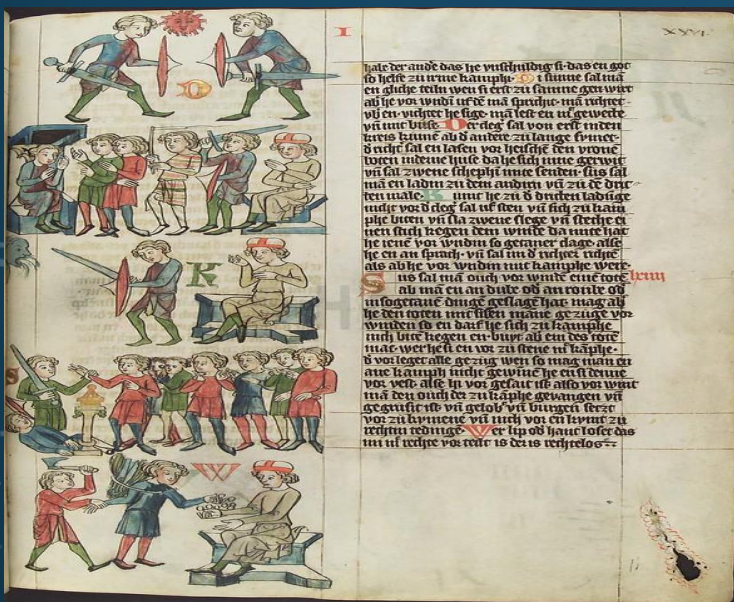 I
XXVI
hale der ande das he vnschuldig si das en got
so helfe zu irme kamphe D i sunne sal mā
en gliche teiln wen si erst zu samne gen wirt
ab he vor wndn uf dē mā spricht mā richtet
vb en vichtet he sige mā lest en mit gewette
vn̄ mit buse Der cleg sal von erst in den
kreis kumē ab d andere zu lange sumet
d richt sal en lasen vor heischē den vronē
boten in deme huse da he sich inne gerwit
vn̄ sal zwene schephin mite senden sus sal
mā en ladin zu dem andirn vn̄ zu dē drit
ten male K umt he zu d driten ladūge
nicht vor d cleg sal uf sten vn̄ sich zu kam
phe biten vn̄ sla zwene slege vn̄ steche ei
nen stich kegen dem winde da mite hat
he ienē vor wndin so getaner clage alse
he en an sprach vn̄ sal im d richter richtē
als ab he vor wndin mit kamphe were
S us sal mā ouch vor windē einē totē lxiiii
ab mā en an dube od an roube od
in sogetanē dinge geslagē hat mag ab
he den totē mit sibn mānē gezuge vor
winden so en darf he sich zu kamphe
nich bitē kegen en butt ab ein des totē
mac wer he si en vor zu stene mit kāphe
d vorleget alle gezug wen so mag man en
ane kamph nicht gewinē he en si denne
vor vest alse hi vor gesait ist also vor wint
man den ouch der zu kāphe gevangen vn̄
gegrusit ist vn̄ gelob vn̄ burgen setzt
vor zu kumene vn̄ nich vor en kymt zu
rechtin tedinge W er lip od hant loset das
im mit rechte vor teilt is der is rechtelos